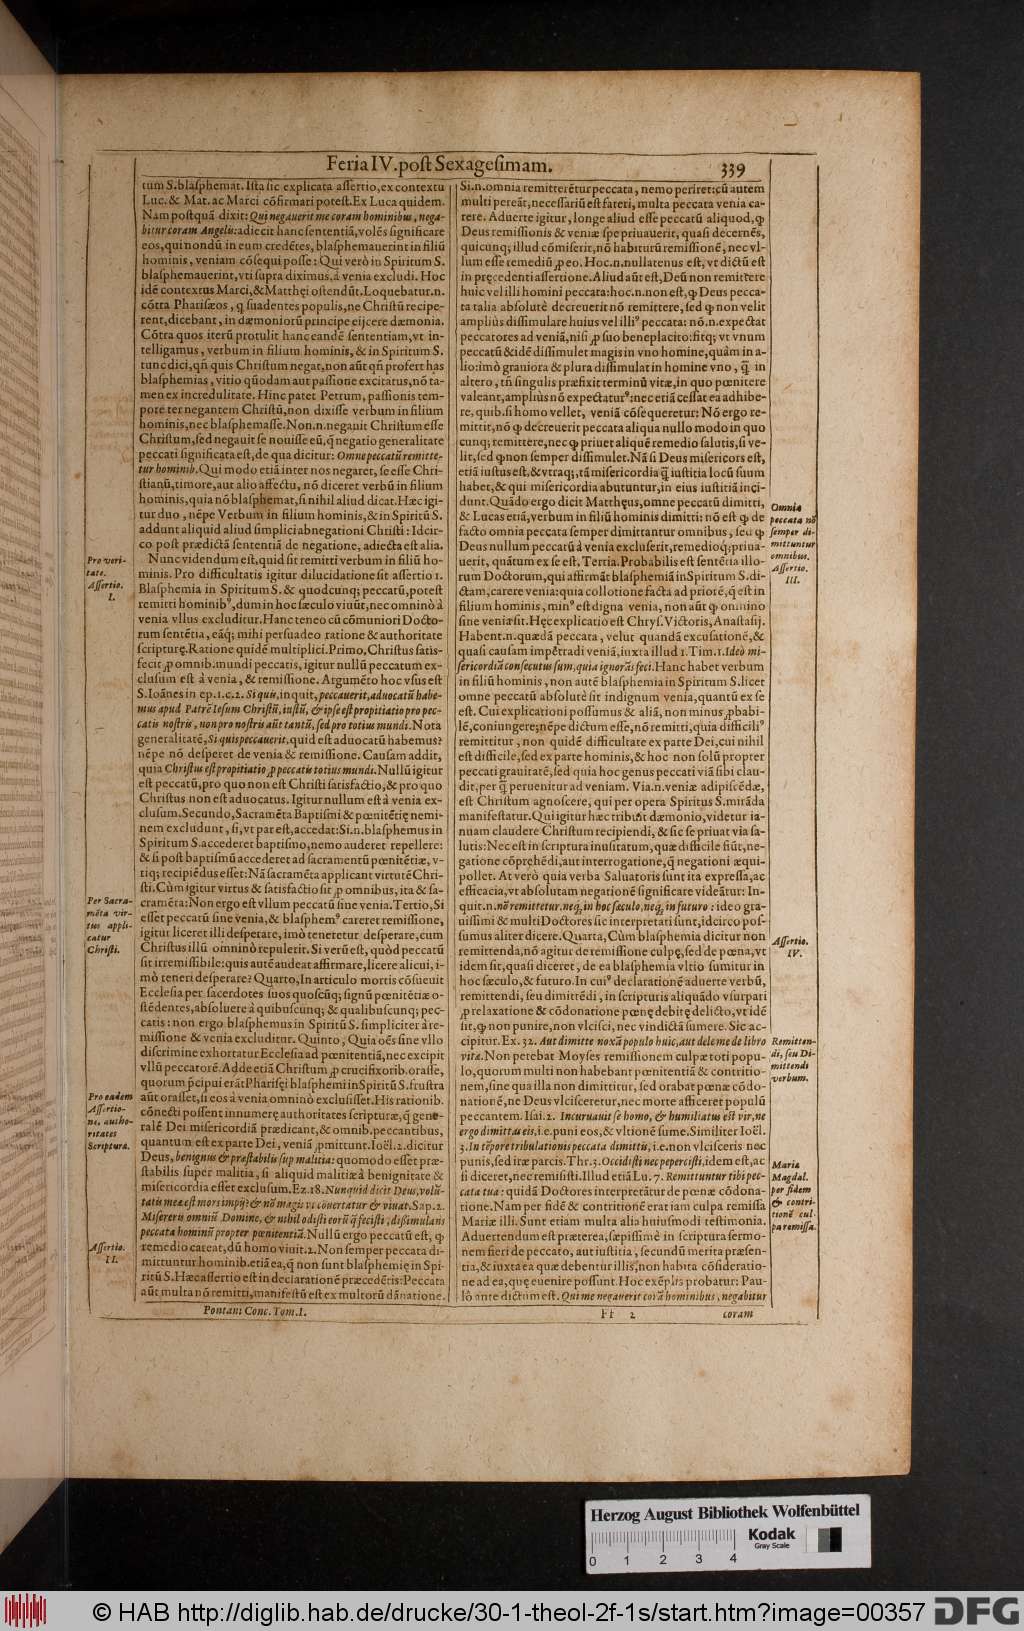 Feria IV. post Sexagesimam. 339
tum S. blasphemat. Ista sic explicata assertio, ex contextu
Luc. & Mat. ac Marci cõfirmari potest. Ex Luca quidem.
Nam postquã dixit: Qui negauerit me coram hominibus, nega-
bitur coram Angelis: adiecit hanc sententiã, volẽs significare
eos, qui nondũ in eum credẽtes, blasphemauerint in filiũ
hominis, veniam cõsequi posse: Qui verò in Spiritum S.
blasphemauerint, vti supra diximus, à venia excludi. Hoc
idẽ contextus Marci, & Matthęi ostendũt. Loquebatur. n.
cõtra Pharisæos, q̃ suadentes populis, ne Christũ recipe-
rent, dicebant, in dæmoniorũ principe eijcere dæmonia.
Cõtra quos iterũ protulit hanc eandẽ sententiam, vt in-
telligamus, verbum in filium hominis, & in Spiritum S.
tunc dici, qñ quis Christum negat, non aũt qñ profert has
blasphemias, vitio quodam aut passione excitatus, nõ ta-
men ex incredulitate. Hinc patet Petrum, passionis tem-
pore ter negantem Christũ, non dixisse verbum in filium
hominis, nec blasphemasse. Non. n. negauit Christum esse
Christum, sed negauit se nouisse eũ, q̃ negatio generalitate
peccati significata est, de qua dicitur: Omne peccatũ remitte-
tur hominib. Qui modo etiã inter nos negaret, se esse Chri-
stianũ, timore, aut alio affectu, nõ diceret verbũ in filium
hominis, quia nõ blasphemat, si nihil aliud dicat. Hæc igi-
tur duo, nẽpe Verbum in filium hominis, & in Spiritũ S.
addunt aliquid aliud simplici abnegationi Christi: Idcir-
co post prædictã sententiã de negatione, adiecta est alia.
Nunc videndum est, quid sit remitti verbum in filiũ ho-
minis. Pro difficultatis igitur dilucidatione sit assertio 1.
Blasphemia in Spiritum S. & quodcunq; peccatũ, potest
remitti hominib⁹, dum in hoc sæculo viuũt, nec omninò à
venia vllus excluditur. Hanc teneo cũ cõmuniori Docto-
rum sentẽtia, eãq; mihi persuadeo ratione & authoritate
scripturę. Ratione quidẽ multiplici. Primo, Christus satis-
fecit ꝓ omnib. mundi peccatis, igitur nullũ peccatum ex-
clusum est à venia, & remissione. Argumẽto hoc vsus est
S. Ioãnes in ep. 1. c. 2. Si quis, inquit, peccauerit, aduocatũ habe-
mus apud Patrẽ Iesum Christũ, iustũ, & ipse est propitiatio pro pec-
catis nostris, non pro nostris aũt tantũ, sed pro totius mundi. Nota
generalitatẽ, Si quis peccauerit, quid est aduocatũ habemus?
nẽpe nõ desperet de venia & remissione. Causam addit,
quia Christus est propitiatio ꝓ peccatis totius mundi. Nullũ igitur
est peccatũ, pro quo non est Christi satisfactio, & pro quo
Christus non est aduocatus. Igitur nullum est à venia ex-
clusum. Secundo, Sacramẽta Baptismi & pœnitẽtię nemi-
nem excludunt, si, vt par est, accedat: Si. n. blasphemus in
Spiritum S. accederet baptismo, nemo auderet repellere:
& si post baptismũ accederet ad sacramentũ pœnitẽtiæ, v-
tiq; recipiẽdus esset: Nã sacramẽta applicant virtutẽ Chri-
sti. Cùm igitur virtus & satisfactio sit ꝓ omnibus, ita & sa-
cramẽta: Non ergo est vllum peccatũ sine venia. Tertio, Si
esset peccatũ sine venia, & blasphem⁹ careret remissione,
igitur liceret illi desperare, imò teneretur desperare, cum
Christus illũ omninò repulerit. Si verũ est, quòd peccatũ
sit irremissibile: quis autẽ audeat affirmare, licere alicui, i-
mò teneri desperare? Quarto, In articulo mortis cõsueuit
Ecclesia per sacerdotes suos quoscũq; signũ pœnitẽtiæ o-
stẽdentes, absoluere à quibuscunq; & qualibuscunq; pec-
catis: non ergo blasphemus in Spiritũ S. simpliciter à re-
missione & venia excluditur. Quinto, Quia oẽs sine vllo
discrimine exhortatur Ecclesia ad pœnitentiã, nec excipit
vllũ peccatorẽ. Adde etiã Christum ꝓ crucifixorib. orasse,
quorum p̃cipui erãt Pharisęi blasphemi in Spiritũ S. frustra
aũt orasset, si eos à venia omninò exclusisset. His rationib.
cõnecti possent innumerę authoritates scripturæ, q̃ gene-
ralẽ Dei misericordiã prædicant, & omnib. peccantibus,
quantum est ex parte Dei, veniã ꝓmittunt. Ioël. 2. dicitur
Deus, benignus & præstabilis sup malitia: quomodo esset præ-
stabilis super malitia, si aliquid malitiæ à benignitate &
misericordia esset exclusum. Ez. 18. Nunquid dicit Deus, volũ-
tatis meæ est mors impij? & nõ magis vt cõuertatur & viuat. Sap. 2.
Misereris omniũ Domine, & nihil odisti eorũ q̃ fecisti, dissimulans
peccata hominũ propter pœnitentiã. Nullũ ergo peccatũ est, ꝙ
remedio careat, dũ homo viuit. 2. Non semper peccata di-
mittuntur hominib. etiã ea, q̃ non sunt blasphemię in Spi-
ritũ S. Hæc assertio est in declarationẽ præcedẽtis: Peccata
aũt multa nõ remitti, manifestũ est ex multorũ dãnatione.
Si. n. omnia remitterẽtur peccata, nemo periret: cũ autem
multi pereãt, necessariũ est fateri, multa peccata venia ca-
rere. Aduerte igitur, longe aliud esse peccatũ aliquod, ꝙ
Deus remissionis & veniæ spe priuauerit, quasi decernẽs,
quicunq; illud cõmiserit, nõ habiturũ remissionẽ, nec vl-
lum esse remediũ ꝓ eo. Hoc. n. nullatenus est, vt dictũ est
in pręcedenti assertione. Aliud aũt est, Deũ non remittere
huic vel illi homini peccata: hoc. n. non est, ꝙ Deus pecca-
ta talia absolutè decreuerit nõ remittere, sed ꝙ non velit
ampliùs dissimulare huius vel illi⁹ peccata: nõ. n. expectat
peccatores ad veniã, nisi ꝓ suo beneplacito: fitq; vt vnum
peccatũ & idẽ dissimulet magis in vno homine, quàm in a-
lio: imò grauiora & plura dissimulat in homine vno, q̃ in
altero, tñ singulis præfixit terminũ vitæ, in quo pœnitere
valeant, ampliùs nõ expectatur⁹: nec etiã cessat ea adhibe-
re, quib. si homo vellet, veniã cõsequeretur: Nõ ergo re-
mittit, nõ ꝙ decreuerit peccata aliqua nullo modo in quo
cunq; remittere, nec ꝙ priuet aliquẽ remedio salutis, si ve-
lit, sed ꝙ non semper dissimulet. Nã si Deus misericors est,
etiã iustus est, & vtraq;, tã misericordia q̃ iustitia locũ suum
habet, & qui misericordia abutuntur, in eius iustitiã inci-
dunt. Quãdo ergo dicit Matthęus, omne peccatũ dimitti,
& Lucas etiã, verbum in filiũ hominis dimitti: nõ est ꝙ de
facto omnia peccata semper dimittantur omnibus, sed ꝙ
Deus nullum peccatũ à venia excluserit, remedioq; priua-
uerit, quãtum ex se est. Tertia. Probabilis est sentẽtia illo-
rum Doctorum, qui affirmãt blasphemiã in Spiritum S. di-
ctam, carere venia: quia collatione facta ad priorẽ, q̃ est in
filium hominis, min⁹ est digna venia, non aũt ꝙ omnino
sine venia sit. Hęc explicatio est Chrys. Victoris, Anastasij.
Habent. n. quædã peccata, velut quandã excusationẽ, &
quasi causam impẽtradi veniã, iuxta illud 1. Tim. 1. Ideò mi-
sericordiã consecutus sum, quia ignorãs feci. Hanc habet verbum
in filiũ hominis, non autẽ blasphemia in Spiritum S. licet
omne peccatũ absolutè sit indignum venia, quantũ ex se
est. Cui explicationi possumus & aliã, non minus ꝓbabi-
lẽ, coniungere; nẽpe dictum esse, nõ remitti, quia difficili⁹
remittitur, non quidẽ difficultate ex parte Dei, cui nihil
est difficile, sed ex parte hominis, & hoc non solũ propter
peccati grauitatẽ, sed quia hoc genus peccati viã sibi clau-
dit, per q̃ peruenitur ad veniam. Via. n. veniæ adipiscẽdæ,
est Christum agnoscere, qui per opera Spiritus S. mirãda
manifestatur. Qui igitur hæc tribuit dæmonio, videtur ia-
nuam claudere Christum recipiendi, & sic se priuat via sa-
lutis: Nec est in scriptura inusitatum, quæ difficile fiũt, ne-
gatione cõprehẽdi, aut interrogatione, q̃ negationi æqui-
pollet. At verò quia verba Saluatoris sunt ita expressa, ac
efficacia, vt absolutam negationẽ significare videãtur: In-
quit. n. nõ remittetur, neq; in hoc sæculo, neq; in futuro: ideo gra-
uissimi & multi Doctores sic interpretati sunt, idcirco pos-
sumus aliter dicere. Quarta, Cùm blasphemia dicitur non
remittenda, nõ agitur de remissione culpę, sed de pœna, vt
idem sit, quasi diceret, de ea blasphemia vltio sumitur in
hoc sæculo, & futuro. In cui⁹ declarationẽ aduerte verbũ,
remittendi, seu dimittẽdi, in scripturis aliquãdo vsurpari
ꝓ relaxatione & cõdonatione pœnę debitę delicto, vt idẽ
sit, ꝙ non punire, non vlcisci, nec vindictã sumere. Sic ac-
cipitur. Ex. 32. Aut dimitte noxã populo huic, aut dele me de libro
vitæ. Non petebat Moyses remissionem culpæ toti popu-
lo, quorum multi non habebant pœnitentiã & contritio-
nem, sine qua illa non dimittitur, sed orabat pœnæ cõdo-
nationẽ, ne Deus vlcisceretur, nec morte afficeret populũ
peccantem. Isai. 2. Incuruauit se homo, & humiliatus est vir, ne
ergo dimittas eis, i. e. puni eos, & vltionẽ sume. Similiter Ioël.
3. In tẽpore tribulationis peccata dimittis, i. e. non vlcisceris nec
punis, sed iræ parcis. Thr. 3. Occidisti nec pepercisti, idem est, ac
si diceret, nec remisisti. Illud etiã Lu. 7. Remittuntur tibi pec-
cata tua: quidã Doctores interpretãtur de pœnæ cõdona-
tione. Nam per fidẽ & contritionẽ erat iam culpa remissa
Mariæ illi. Sunt etiam multa alia huiusmodi testimonia.
Aduertendum est præterea, sæpissimè in scriptura sermo-
nem fieri de peccato, aut iustitia, secundũ merita præsen-
tia, & iuxta ea quæ debentur illis, non habita cõsideratio-
ne ad ea, quę euenire possunt. Hoc exẽplis probatur: Pau-
lò ante dictum est. Qui me negauerit corã hominibus, negabitur
Pro veri-
tate.
Assertio.
I.
Per Sacra-
mẽta vir-
tus appli-
catur
Christi.
Pro eadem
Assertio-
ne, autho-
ritates
Scripturæ.
Assertio.
II.
Omnia
peccata nõ
semper di-
mittuntur
omnibus.
Assertio.
III.
Assertio.
IV.
Remitten-
di, seu Di-
mittendi
verbum.
Maria
Magdal.
per fidem
& contri-
tionẽ cul-
pa remissa.
Pontani Conc. Tom. I. Ff 2 coram
Herzog August Bibliothek Wolfenbüttel
Kodak
Gray Scale
0 1 2 3 4
© HAB http://diglib.hab.de/drucke/30-1-theol-2f-1s/start.htm?image=00357 DFG